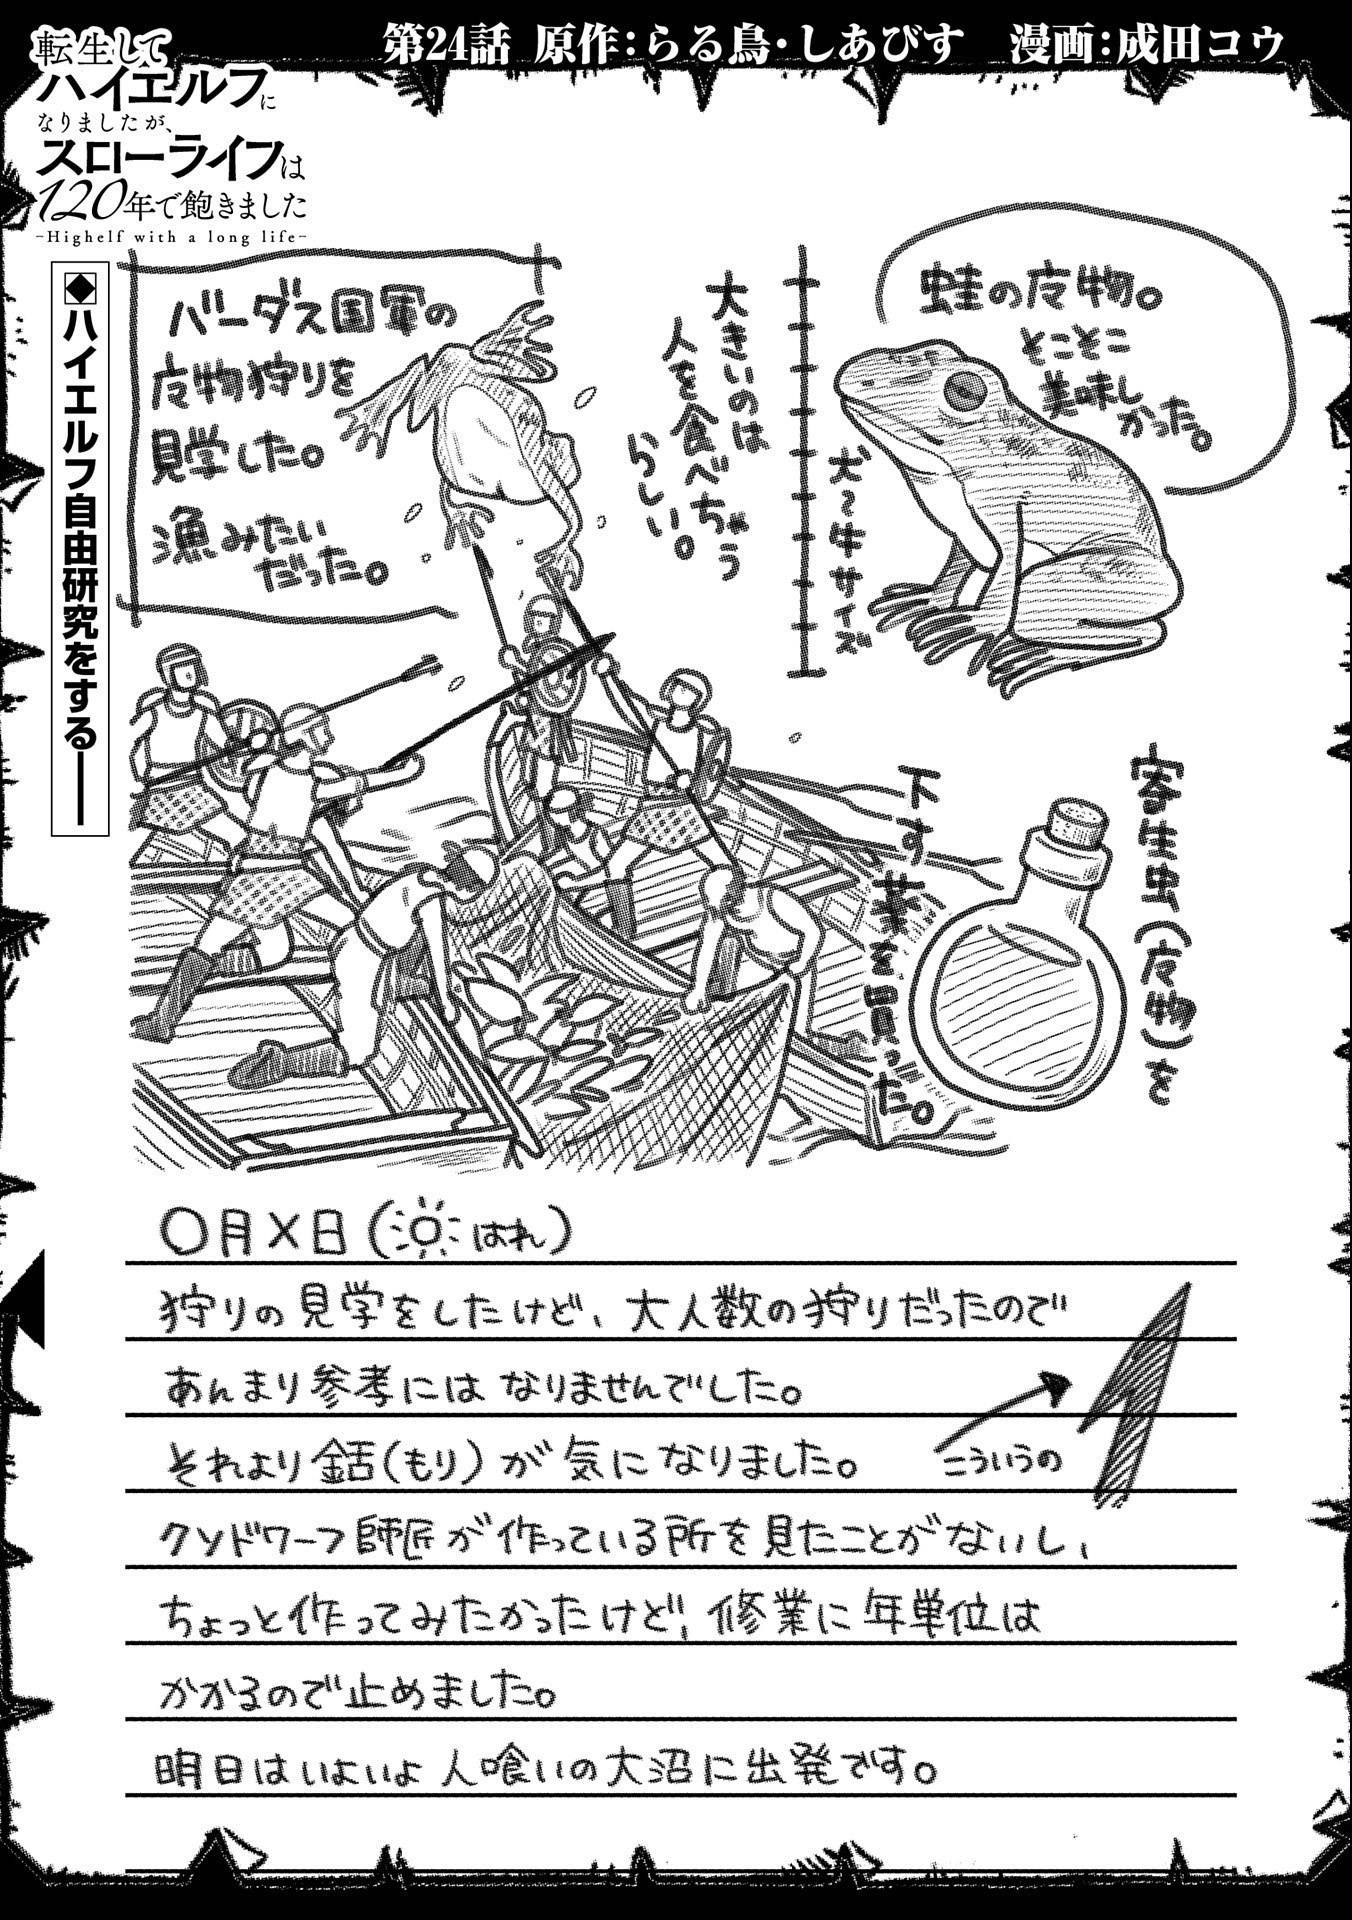 第24話 原作：らる鳥・しあびす 漫画：成田コウ
転生して
ハイエルフに
なりましたが、
スローライフは
120年で飽きました
-Highelf with a long life-
◆ハイエルフ自由研究をする――
蛙の魔物。
とことこ
美味し
かった。
犬〜牛サイズ
大きいのは
人を食べちゃう
らしい。
バーダス国軍の
魔物狩りを
見学した。
漁みたい
だった。
寄生虫(魔物)を
下す薬を買った。
〇月×日(はれ)
狩りの見学をしたけど、大人数の狩りだったので
あんまり参考にはなりませんでした。
それより銛(もり)が気になりました。
こういうの
クソドワーフ師匠が作っている所を見たことがないし、
ちょっと作ってみたかったけど、修業に年単位は
かかるので止めました。
明日はいよいよ人喰いの大沼に出発です。